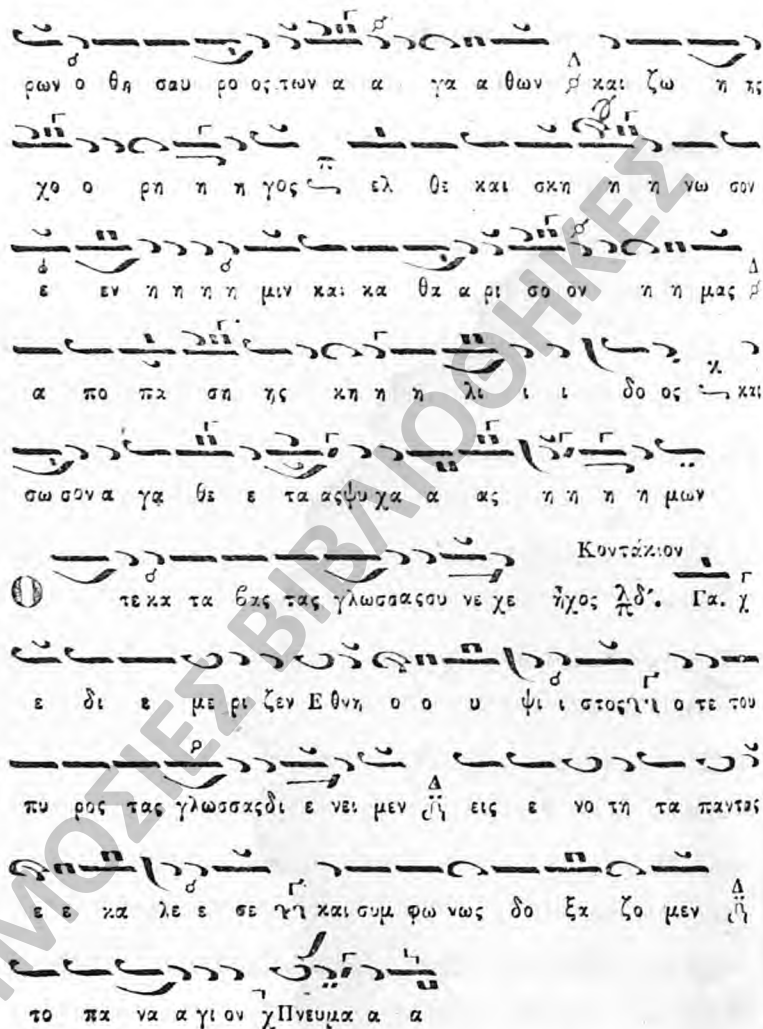 ρων ο θη σαυ ρο ος των α α γα α θων Δ και ζω η ης
χο ο ρη η η γος π ελ θε και σκη η η νω σον
ε εν η η η η μιν και κα θα α ρι σο ον η η μας Δ
α πο πα ση ης κη η η λι ι ι δο ος κ και
σω σον α γα θε ε τα ας ψυ χα α ας η η η η μων
Κοντάκιον
Ο τε κα τα βας τας γλωσσας συ νε χε ἦχος λπδ'. Γα. χ
ε δι ε με ρι ζεν Ε θνη ο ο υ ψι ι στος Γ ο τε του
πυ ρος τας γλωσσας δι ε νει μεν Δ εις ε νο τη τα παντας
ε ε κα λε ε σε Γ και συμ φω νως δο ξα ζο μεν Δ
το πα να α γι ον χ Πνευμα α α
ΗΜΟΣΙΕΣ ΒΙΒΛΙΟΘΗΚΕΣ